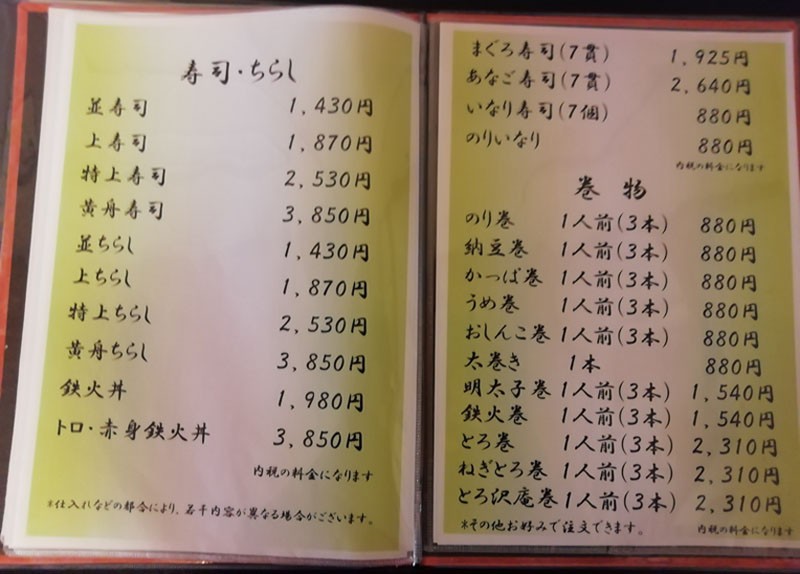 寿司・ちらし
並寿司 1,430円
上寿司 1,870円
特上寿司 2,530円
黄舟寿司 3,850円
並ちらし 1,430円
上ちらし 1,870円
特上ちらし 2,530円
黄舟ちらし 3,850円
鉄火丼 1,980円
トロ・赤身鉄火丼 3,850円
内税の料金になります
*仕入れなどの都合により、若干内容が異なる場合がございます。
まぐろ寿司(7貫) 1,925円
あなご寿司(7貫) 2,640円
いなり寿司(7個) 880円
のりいなり 880円
内税の料金になります
巻物
のり巻 1人前(3本) 880円
納豆巻 1人前(3本) 880円
かっぱ巻 1人前(3本) 880円
うめ巻 1人前(3本) 880円
おしんこ巻 1人前(3本) 880円
太巻き 1本 880円
明太子巻 1人前(3本) 1,540円
鉄火巻 1人前(3本) 1,540円
とろ巻 1人前(3本) 2,310円
ねぎとろ巻 1人前(3本) 2,310円
とろ沢庵巻 1人前(3本) 2,310円
*その他お好みで注文できます。
内税の料金になります